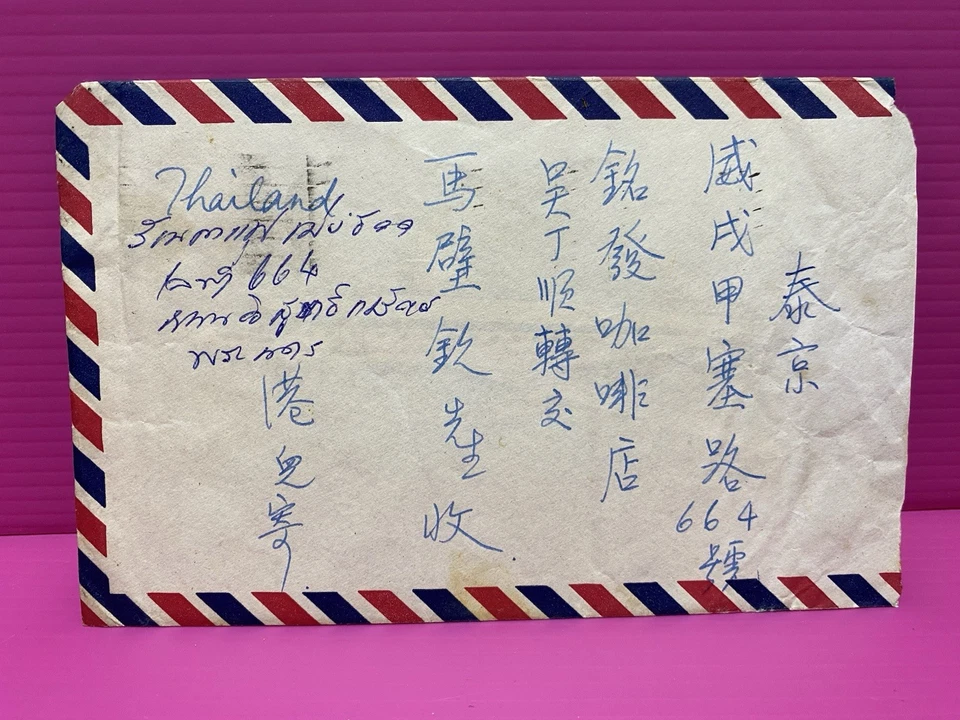 泰京
威戍甲塞路664號
銘發咖啡店
吳丁順轉交
馬壁欽先生收
Thailand
ร้านกาแฟ เม่งฮวด
เลขที่ 664
ถนนวิสุทธิกษัตริย์
พระนคร
港兒寄